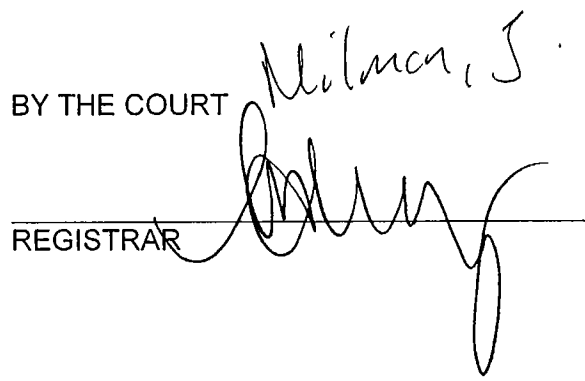 BY THE COURT Milman, J.
REGISTRAR